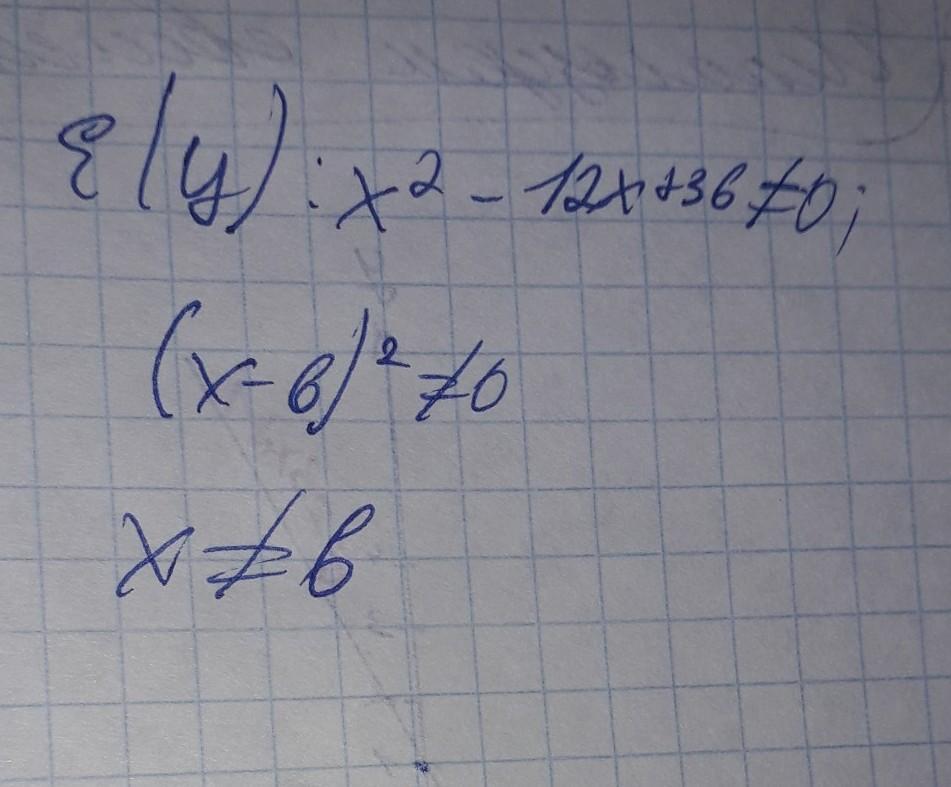 E(y): x² - 12x+36≠0;
(x-6)²≠0
x≠6